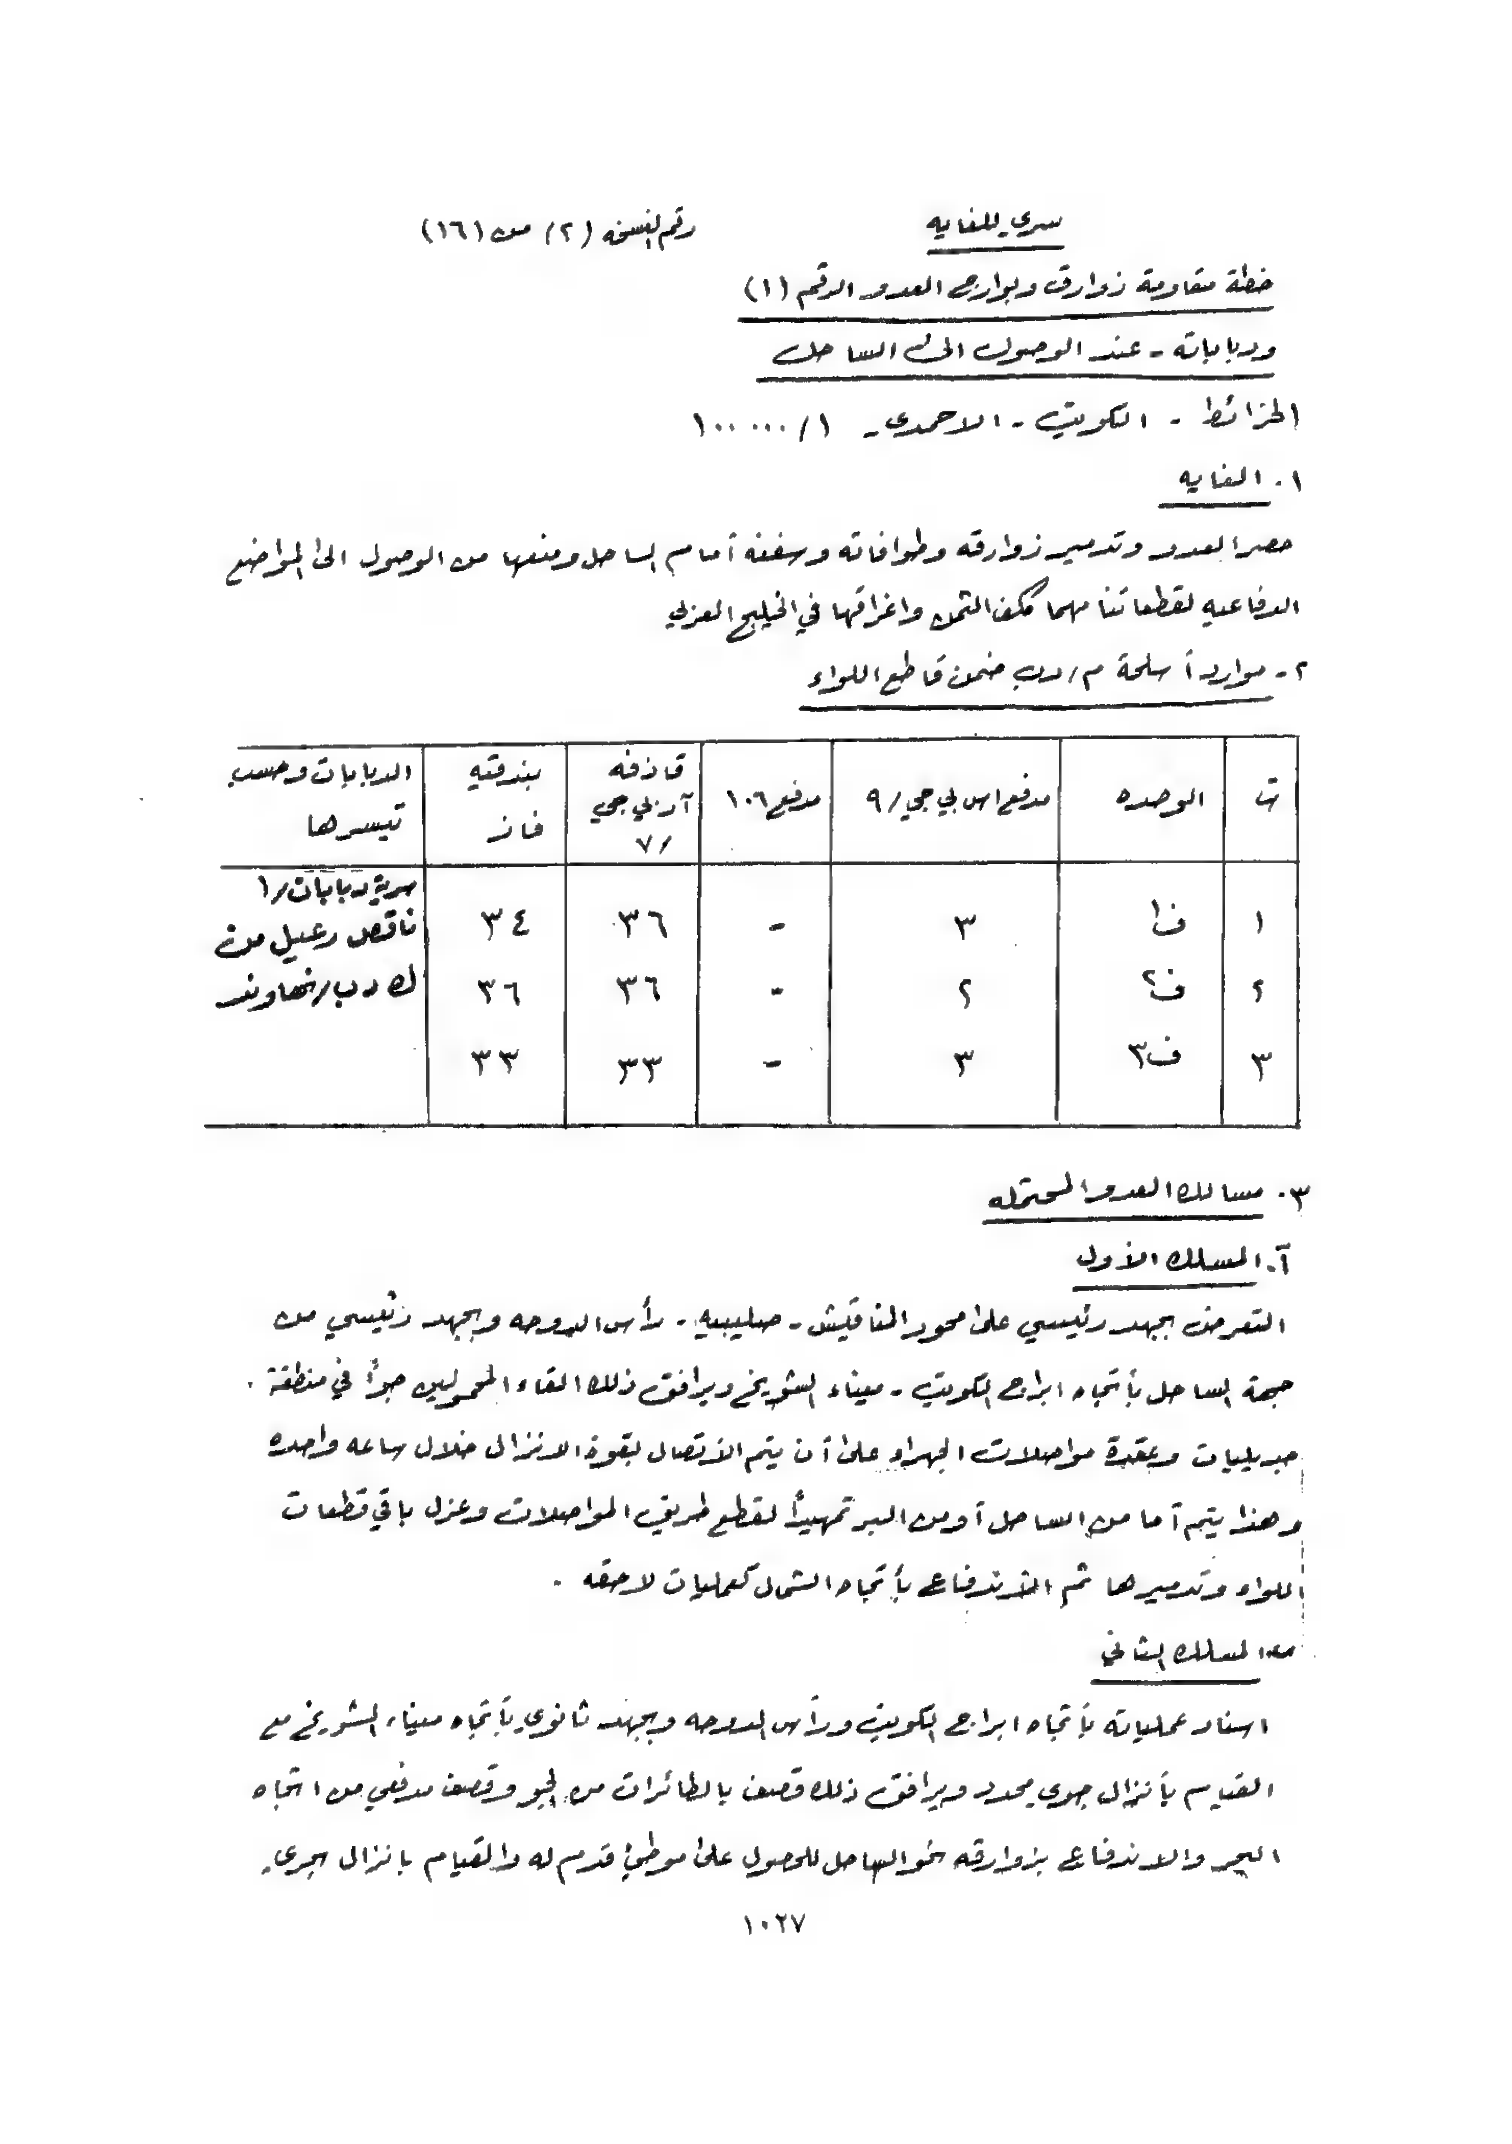 سري للغايه
رقم النسخه (٢) من (١٦)
خطة مقاومة زوارق وبوارج العدو الرقم (١)
ودباباته - عند الوصول الى الساحل
الخرائط - الكويت - الاحمدي - ١/١٠٠٠٠٠
١. الغايه
حصر العدو وتدمير زوارقه وطوافاته وسفنه أمام الساحل ومنعها من الوصول الى المواضع
الدفاعيه لقطعاتنا مهما كلف الثمن واغراقها في الخليج العربي
٢- موارد أسلحة م/دب ضمن قاطع اللواء
ت | الوحده | مدفع اس بي جي/٩ | مدفع ١٠٦ | قاذفه آر بي جي /٧ | بندقيه فاز | الدبابات وحسب تيسرها
١ | ف١ | ٣ | - | ٣٦ | ٣٤ | سرية دبابات/١
٢ | ف٢ | ٢ | - | ٣٦ | ٣٦ | ناقص رعيل من
٣ | ف٣ | ٣ | - | ٣٣ | ٣٣ | ك دب/نهاوند
٣. مسالك العدو المحتمله
آ. المسلك الأول
التعرض بجهد رئيسي على محور المناقيش - صليبيه - رأس الدوحه وبجهد رئيسي من
جبهة الساحل بأتجاه ابراج الكويت - ميناء الشويخ ويرافق ذلك القاء المحمولين جواً في منطقة
جديليات وعقدة مواصلات الجهراء على أن يتم الأتصال بقوة الانزال خلال ساعه واحده
وهذا يتم أما من الساحل أو من البر تمهيداً لقطع طريق المواصلات وعزل باقي قطعات
اللواء وتدميرها ثم الأندفاع بأتجاه الشمال كعمليات لاحقه .
ب. المسلك الثاني
اسناد عملياته بأتجاه ابراج الكويت ورأس الدوحه وبجهد ثانوي بأتجاه ميناء الشويخ مع
القيام بأنزال جوي محدود ويرافق ذلك قصف بالطائرات من الجو وقصف مدفعي من اتجاه
البحر والاندفاع بزوارقه نحو الساحل للحصول على موطئ قدم له والقيام بانزال بحري.
١٠٢٧